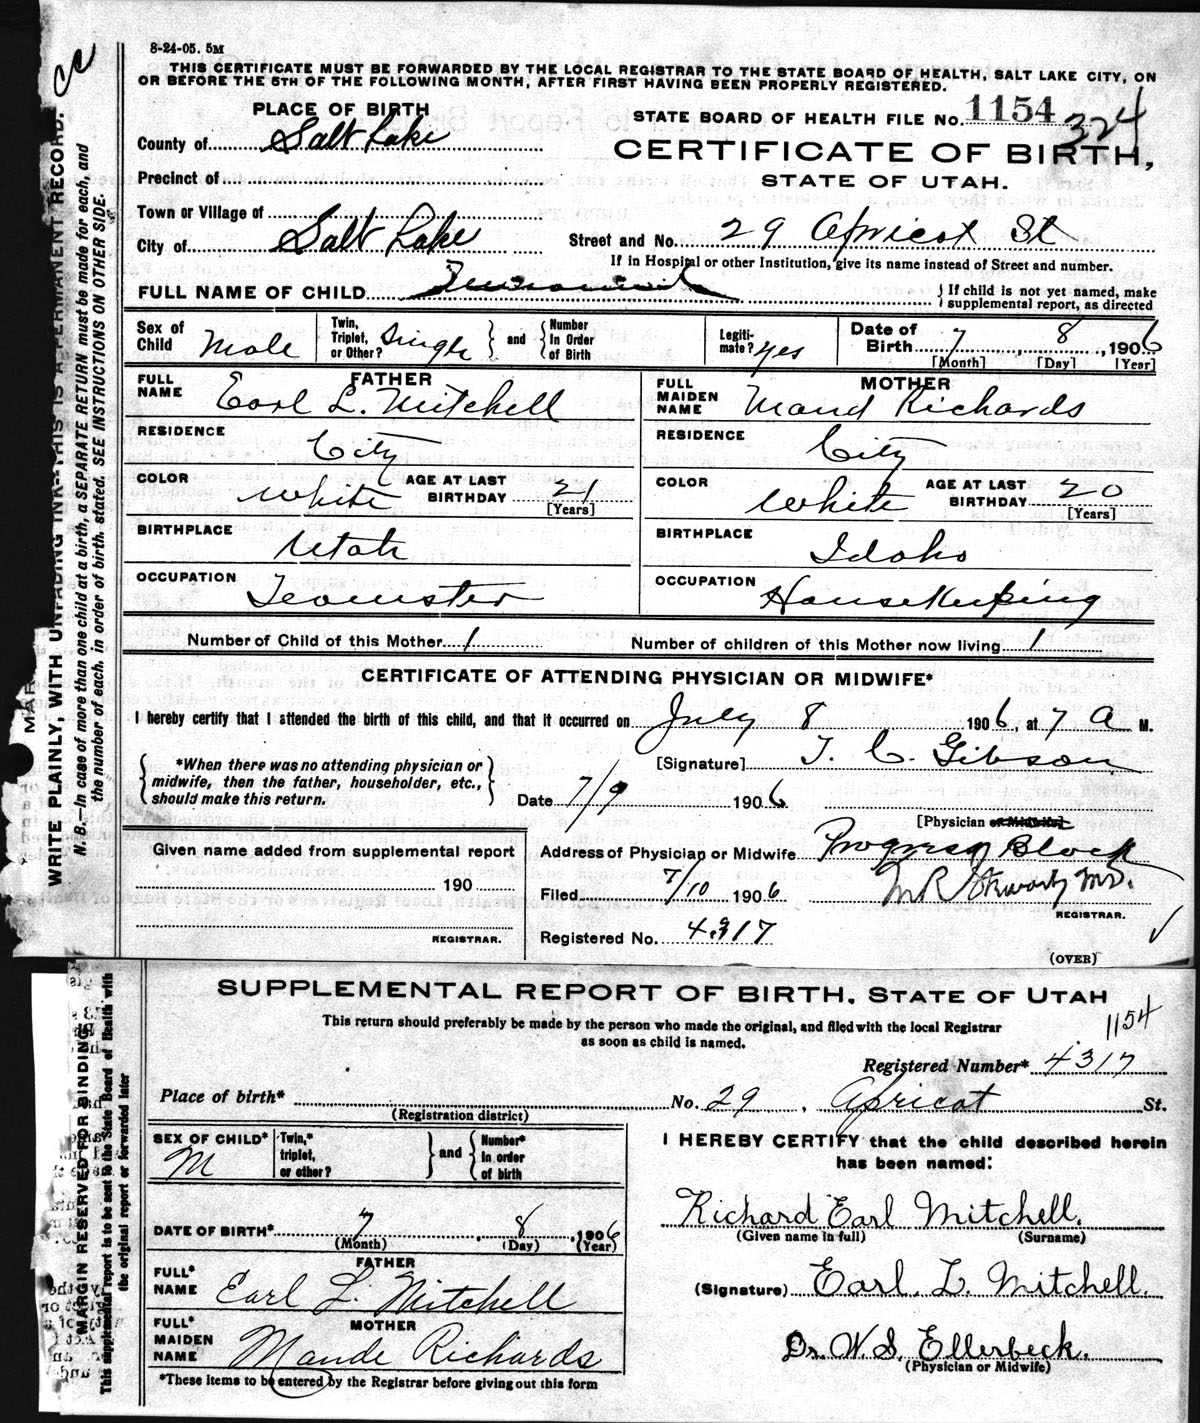 8-24-05. 5M
THIS CERTIFICATE MUST BE FORWARDED BY THE LOCAL REGISTRAR TO THE STATE BOARD OF HEALTH, SALT LAKE CITY, ON
OR BEFORE THE 5TH OF THE FOLLOWING MONTH, AFTER FIRST HAVING BEEN PROPERLY REGISTERED.
PLACE OF BIRTH
STATE BOARD OF HEALTH FILE No. 1154 324
County of Salt Lake
CERTIFICATE OF BIRTH,
Precinct of
STATE OF UTAH.
Town or Village of
City of Salt Lake
Street and No. 29 Apricot St
If in Hospital or other Institution, give its name instead of Street and number.
FULL NAME OF CHILD
If child is not yet named, make
supplemental report, as directed
Sex of Child Male
Twin, Triplet, or Other? Single and Number In Order of Birth
Legitimate? yes
Date of Birth 7, 8, 1906
[Month] [Day] [Year]
FATHER
FULL NAME Earl L. Mitchell
MOTHER
FULL MAIDEN NAME Maud Richards
RESIDENCE City
RESIDENCE City
COLOR White AGE AT LAST BIRTHDAY 21 [Years]
COLOR White AGE AT LAST BIRTHDAY 20 [Years]
BIRTHPLACE Utah
BIRTHPLACE Idaho
OCCUPATION Teamster
OCCUPATION HouseKeeping
Number of Child of this Mother 1
Number of children of this Mother now living 1
CERTIFICATE OF ATTENDING PHYSICIAN OR MIDWIFE*
I hereby certify that I attended the birth of this child, and that it occurred on July 8 1906, at 7 A M.
*When there was no attending physician or
midwife, then the father, householder, etc.,
should make this return.
[Signature] T. C. Gibson
Date 7/9 1906
[Physician or Midwife]
Given name added from supplemental report
190
REGISTRAR.
Address of Physician or Midwife Progress Block
Filed 7/10 1906 M.D.
REGISTRAR.
Registered No. 4317
(OVER)
WRITE PLAINLY, WITH UNFADING INK—THIS IS A PERMANENT RECORD.
N. B.—In case of more than one child at a birth, a SEPARATE RETURN must be made for each, and
the number of each, in order of birth, stated. SEE INSTRUCTIONS ON OTHER SIDE.
SUPPLEMENTAL REPORT OF BIRTH, STATE OF UTAH
This return should preferably be made by the person who made the original, and filed with the local Registrar
as soon as child is named.
1154
Registered Number* 4317
Place of birth* No. 29, Apricot St.
(Registration district)
SEX OF CHILD* M
Twin,* triplet, or other? and Number* In order of birth
I HEREBY CERTIFY that the child described herein
has been named:
DATE OF BIRTH* 7, 8, 1906
(Month) (Day) (Year)
Richard Earl Mitchell.
(Given name in full) (Surname)
FATHER
FULL* NAME Earl L. Mitchell
(Signature) Earl. L. Mitchell.
MOTHER
FULL* MAIDEN NAME Maude Richards
Dr. W. S. Ellerbeck.
(Physician or Midwife)
*These items to be entered by the Registrar before giving out this form
MARGIN RESERVED FOR BINDING
This supplemental report is to be sent to the State Board of Health with
the original report or forwarded later